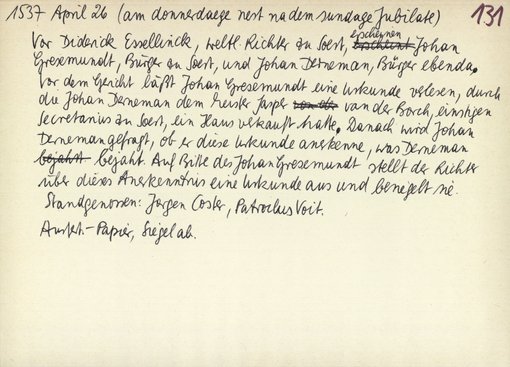 1537 April 26 (am donnerdaege nest na dem sundage Jubilate) 131
Vor Diderick Essellinck, weltl. Richter zu Soest, erscheinen Johan
Gresemundt, Bürger zu Soest, und Johan Derneman, Bürger ebenda.
Vor dem Gericht läßt Johan Gresemundt eine Urkunde verlesen, durch
die Johan Derneman dem Meister Jasper van der Borch, einstigen
Secretarius zu Soest, ein Haus verkauft hatte. Danach wird Johan
Derneman gefragt, ob er diese Urkunde anerkenne, was Derneman
bejaht bejaht. Auf Bitte des Johan Gresemundt stellt der Richter
über dieses Anerkenntnis eine Urkunde aus und besiegelt sie.
Standgenossen: Jorgen Coster, Patroclus Voit.
Ausfert.-Papier, Siegel ab.